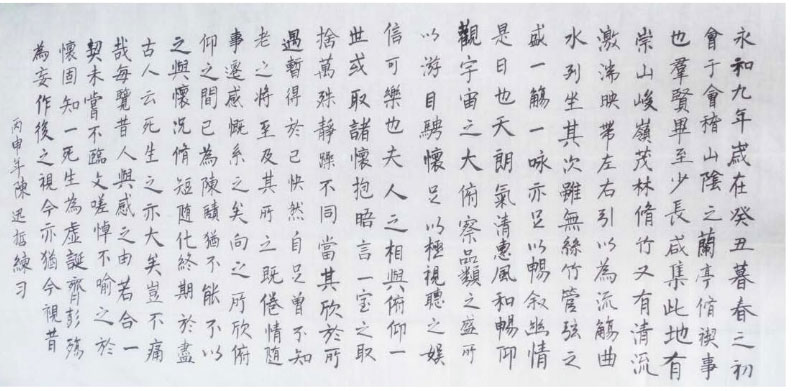 永和九年歲在癸丑暮春之初
會于會稽山陰之蘭亭脩禊事
也羣賢畢至少長咸集此地有
崇山峻嶺茂林脩竹又有清流
激湍映帶左右引以為流觴曲
水列坐其次雖無絲竹管弦之
盛一觴一咏亦足以暢叙幽情
是日也天朗氣清惠風和暢仰
觀宇宙之大俯察品類之盛所
以游目騁懷足以極視聽之娛
信可樂也夫人之相與俯仰一
世或取諸懷抱晤言一室之取
捨萬殊靜躁不同當其欣於所
遇暫得於己快然自足曾不知
老之將至及其所之既倦情隨
事遷感慨系之矣向之所欣俯
仰之間已為陳蹟猶不能不以
之興懷况脩短隨化終期於盡
古人云死生之亦大矣豈不痛
哉每覽昔人興感之由若合一
契未嘗不臨文嗟悼不喻之於
懷固知一死生為虛誕齊彭殤
為妄作後之視今亦猶今視昔
丙申年陳迅哲練习